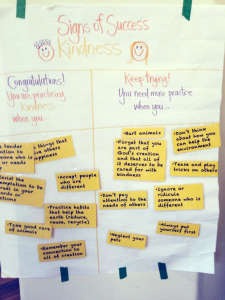 Signs of Success
Kindness
Congratulations!
You are practicing
Kindness
when you
Keep trying!
You need more practice
when you...
tender
to
who is
or needs
things that
others
happiness
the
to be
in your
or actions
• Accept people
who are
different
• Practice habits
that help the
earth (reduce,
reuse, recycle)
Take good care
of animals
• Remember your
connection to
all of creation
• Hurt animals
• Forget that you
are part of
God's creation
and that all of
it deserves to be
cared for with
kindness
• Don't think
about how you
can help the
environment
• Tease and play
tricks on others
• Don't pay
attention to the
needs of others
• Ignore or
ridicule
someone who is
different
• Neglect your
pets
• Always put
yourself first